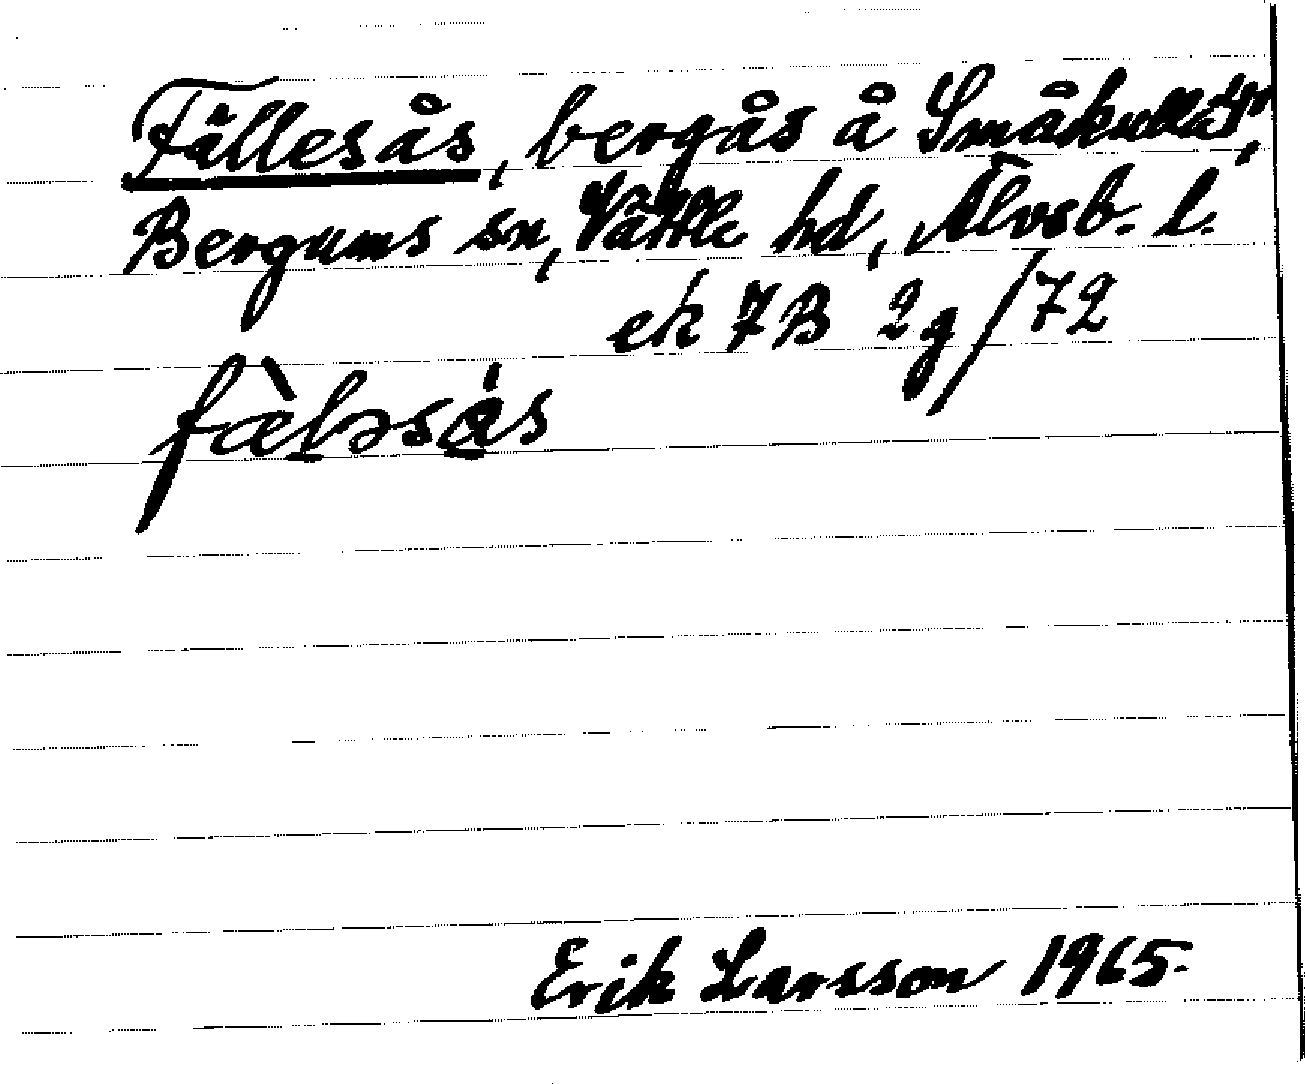 Fällesås, bergås å Småkulla
Bergums sn, Vättle hd, Älvsb. l.
ek 7B 2g/72
fæ̀lɘsås
Erik Larsson 1965.